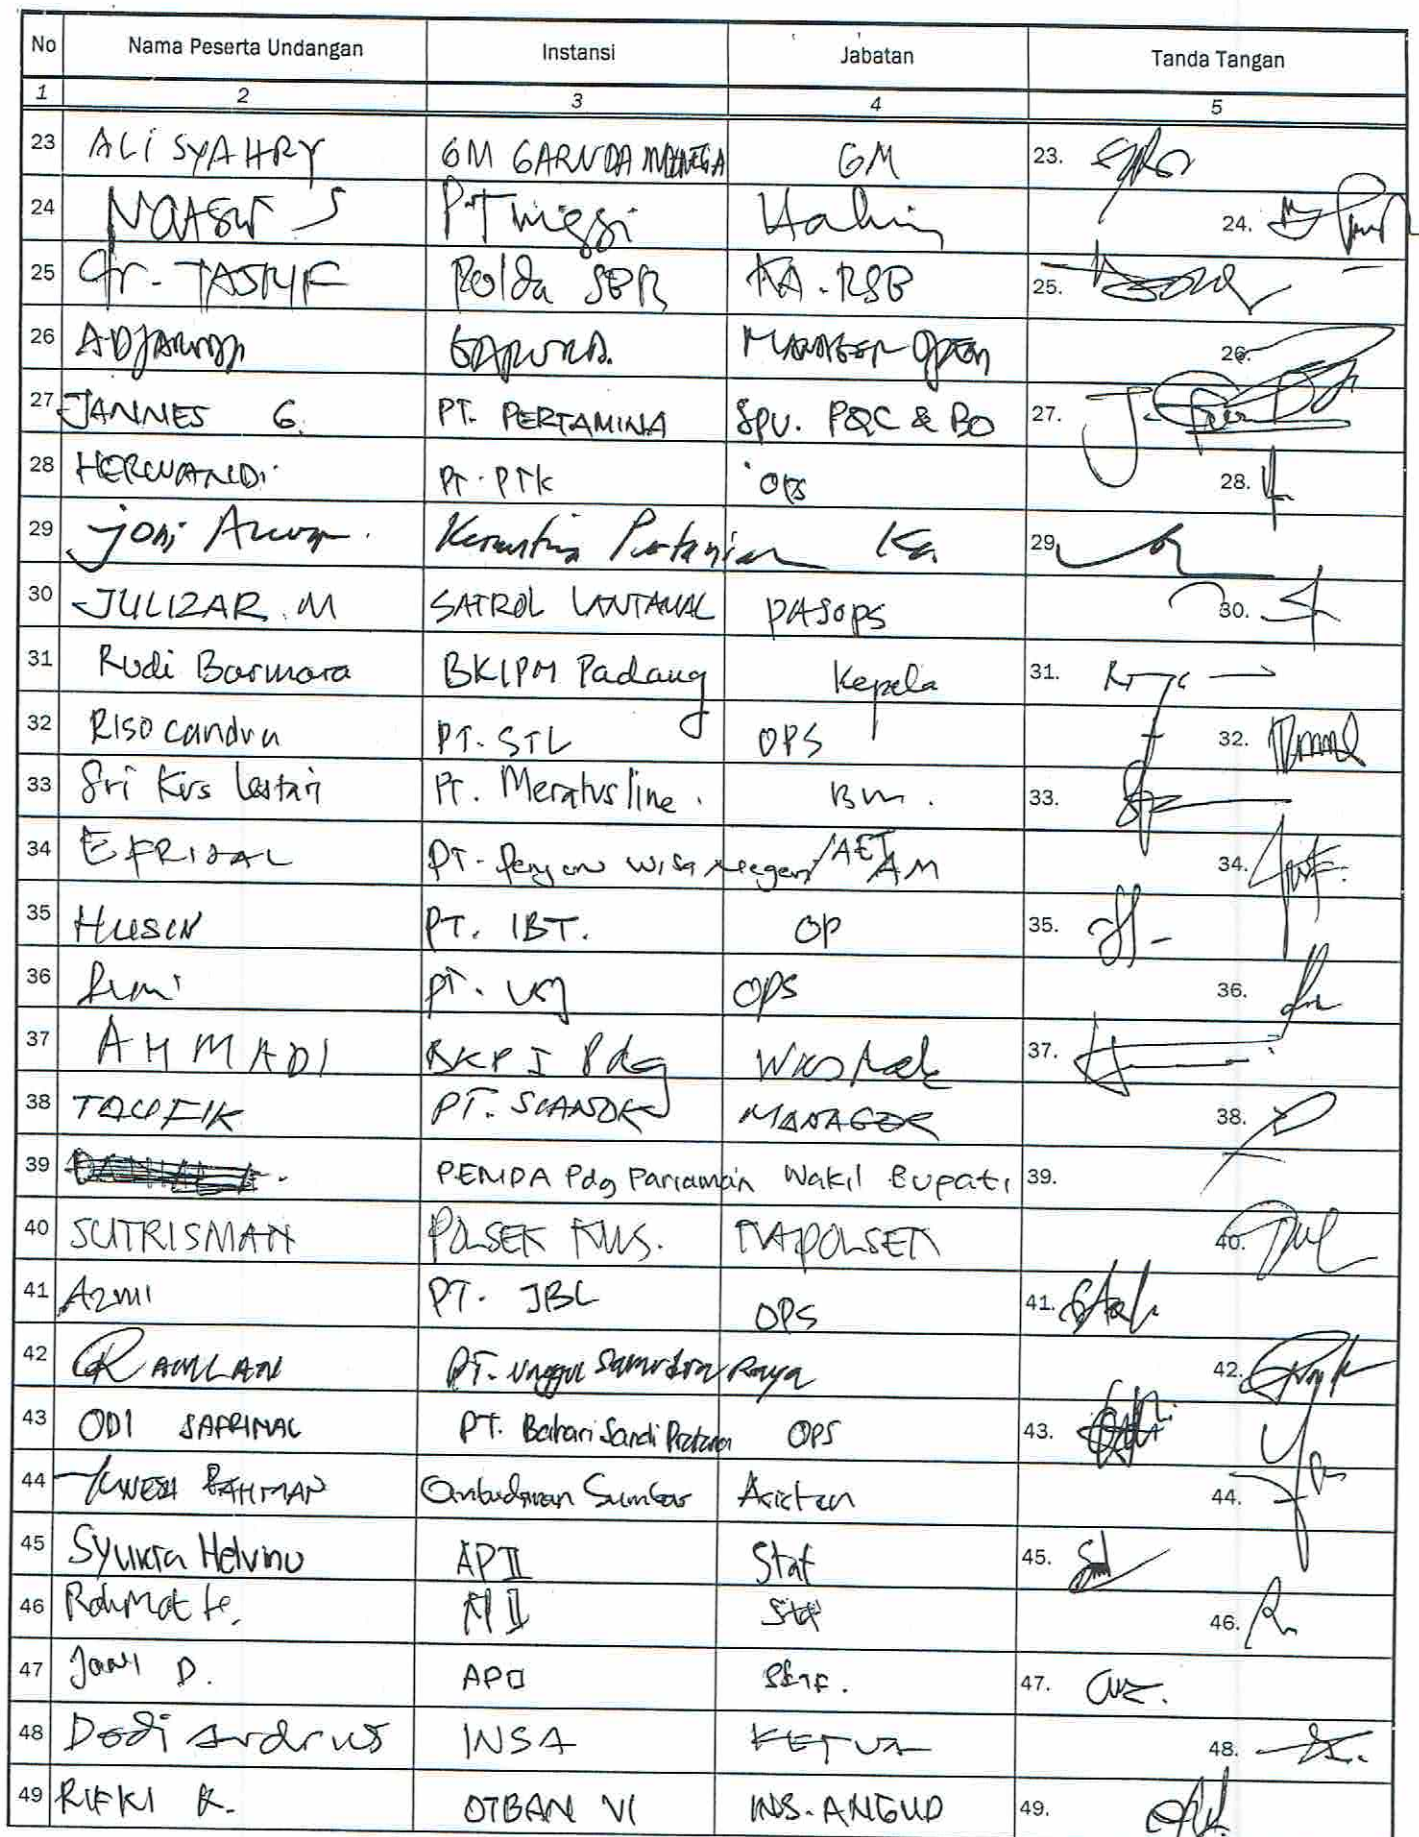 No Nama Peserta Undangan Instansi Jabatan Tanda Tangan
1 2 3 4 5
23 ALI SYAHRY GM GARUDA GM 23.
24 S PT Tinggi Hakim 24.
25 Gr. TASRIF Polda SBR KA. RSB 25.
26 GAPURA. MANAGER 26.
27 JANNES G. PT. PERTAMINA SPV. PQC & BO 27.
28 HERWANDI PT. PTK OPS 28.
29 Joni Karantina Pertanian Ka 29.
30 JULIZAR. M SATROL LANTAMAL PASOPS 30.
31 Rudi Barmara BKIPM Padang Kepala 31.
32 RISO candra PT. STL OPS 32.
33 Sri Kus lestari PT. Meratus line. BM. 33.
34 EFRIZAL PT. AM 34.
35 HUSEN PT. IBT. OP 35.
36 PT. OPS 36.
37 AHMADI Pdg 37.
38 TAUFIK PT. MANAGER 38.
39 PEMDA Pdg Pariaman Wakil Bupati 39.
40 SUTRISMAN POLSEK KWS. KAPOLSEK 40.
41 AZMI PT. JBL OPS 41.
42 RAMLAN PT. Unggul Samudra Raya 42.
43 ODI SAFRINAL PT. Bahari Sandi Pratama OPS 43.
44 RAHMAN Ombudsman Sumbar Asisten 44.
45 Syukra Helvino AP II Staf 45.
46 Rahmat AP II Staf 46.
47 D. AP II 47.
48 Dodi INSA KETUA 48.
49 RIFKI R. OTBAN VI INS. ANGUD 49.